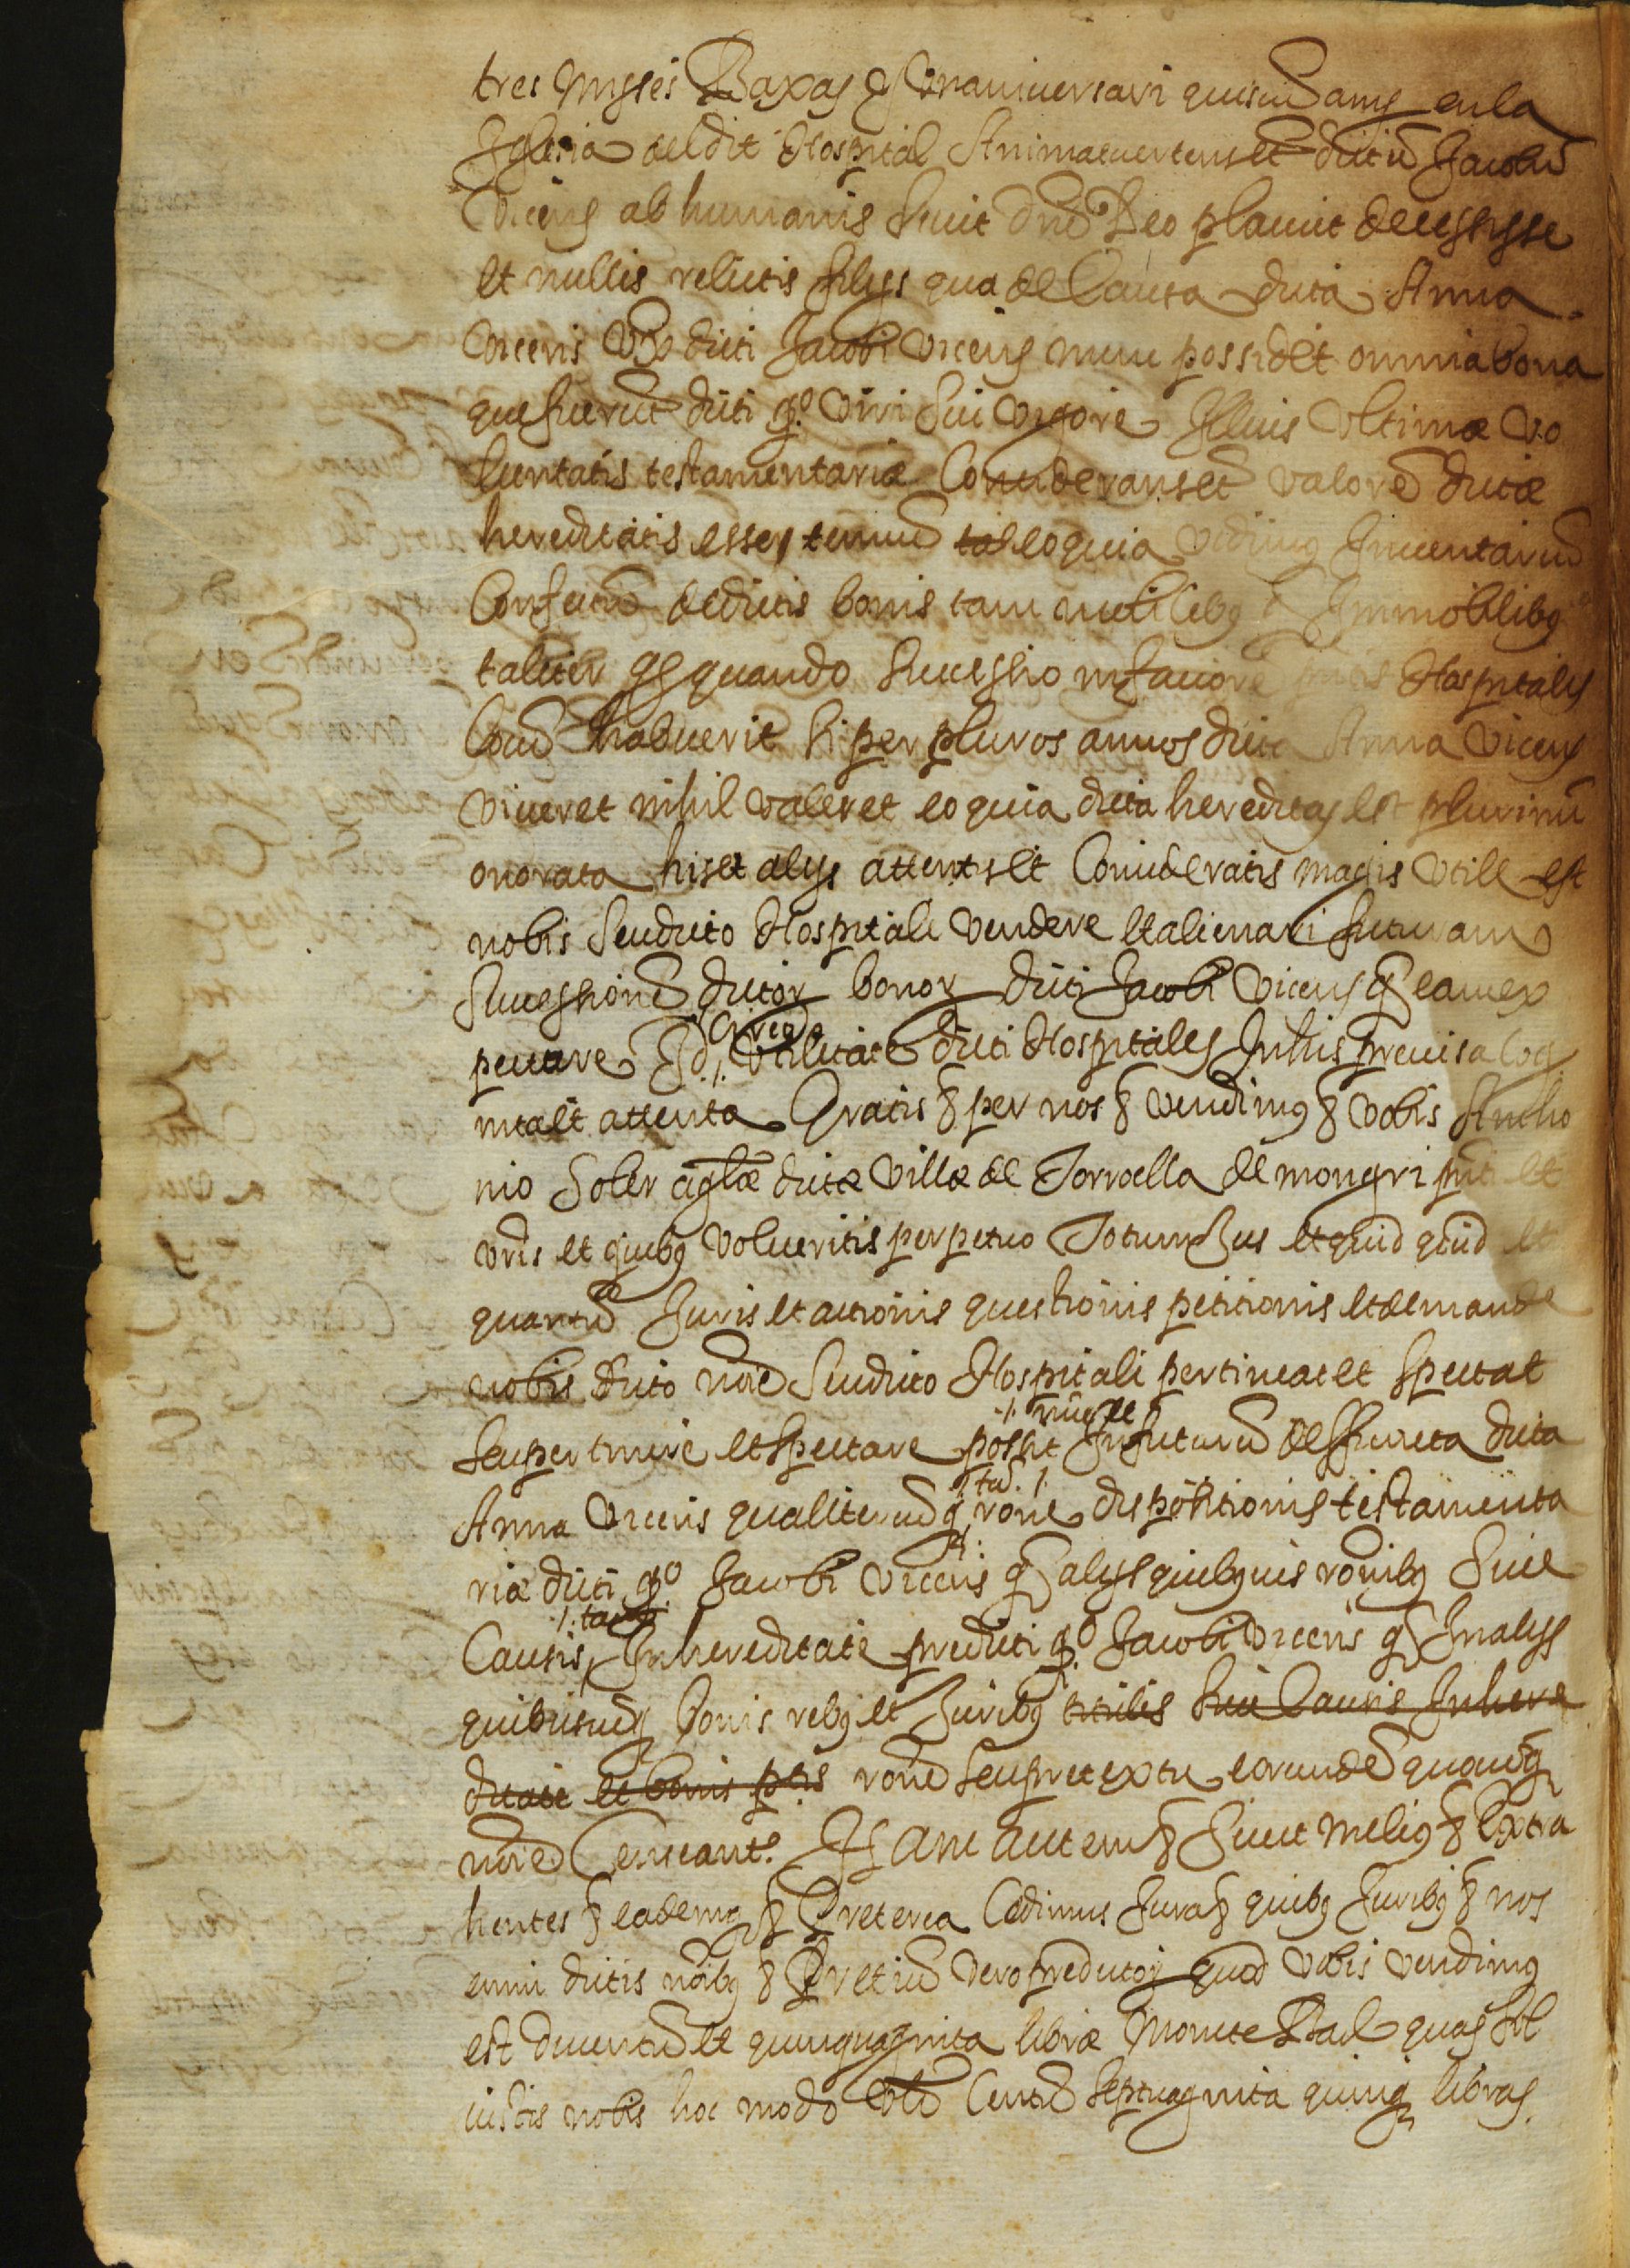 tres misses Baxas y Vn aniuersari quiscũ anys en la
Iglesia del dit Hospital Animaduertenset dictũ Jacobũ
Vicens ab humanis sicut dño Deo placuit decessisse
et nullis relictis filijs qua de Causa dicta Anna
Vicens Vx̃ dicti Jacobi Vicens nunc possidet omnia bona
que fuerũt dicti qº Viri sui Vigore Illius Vltimæ Vo
luntatis testamentariæ Consideranset valorẽ dictæ
hereditatis esse tenuẽ eo quia vidimus Inuentariũ
Confectũ de dictis bonis tam mobilibus q̃ Immobilibus
taliter qs quando successio in fauorẽ Hospitalis
locũ habuerit si per pluros annos dicta Anna Vicens
viueret nihil valeret eo quia dicta hereditas est plurimũ
onorata his et alijs attentis et Consideratis magis Vtile est
nobis seu dicto Hospitali Vendere et alienari futuram
successionẽ dictor bonor dicti Jacobi Vicens q̃ eam ex
pectare Id Circo Vtilitate dicti Hospitalis In his preuisa Cog
nita et attenta Gratis & per nos & vendimus & vobis Antho
nio Soler dictæ Villæ de Torroella de mongri et
vr̃is et quibus Volueritis perpetuo Totum Jus et quid quid et
quantũ Juris et actionis questionis petitionis et demande
nobis dicto nõie seu dicto Hospitali pertineat et spectat
seu pertinere et spectare possit ./. nũc et In futurũ deffuncta dicta
Anna Vicens qualitercũq ./. tã ./. rõne dispositionis testamenta
riæ dicti qº Jacobi Vicens q̃ alijs quibusuis rõnibus siue
Causis In hereditate predicti qº Jacobi Vicens q̃ In alijs
quibuscũq bonis rebus et Juribus titulis siue Causis In here
ditate et bonis ptis rõne seu pretextu eorundẽ quouisq
nõie Censeant. Hanc autem & sicut melius & Extra
hentes & eademq & Preterea Cedimus Jura & quibus Juribus & nos
enim dictis nõibus & Pretiũ vero predictor quod vobis vendimus
est ducentũ et quinquaginta libræ Monete Bar̃ quas sol
uistis nobis hoc modo Vlt Centũ septuaginta quinq libras